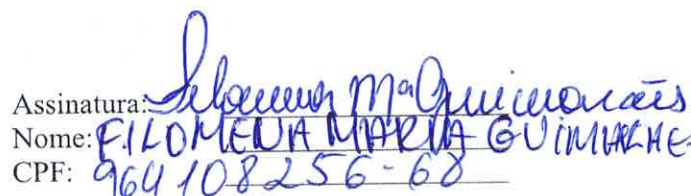 Assinatura: Filomena Mª Guimarães
Nome: FILOMENA MARIA GUIMARÃES
CPF: 964108256-68